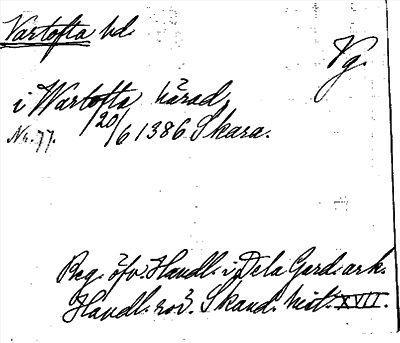 Vartofta hd.
Vg.
i Wartofta härad,
20/6 1386 Skara.
No. 77.
Reg. öfv. Handl. i De la Gard. ark.
Handl. rör. Skand. hist. XVII.